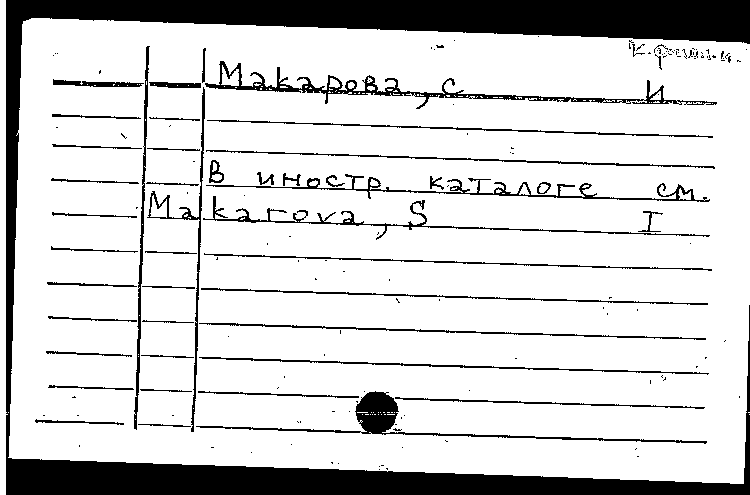 Макарова, С И
В иностр. каталоге см.
Makarova, S I